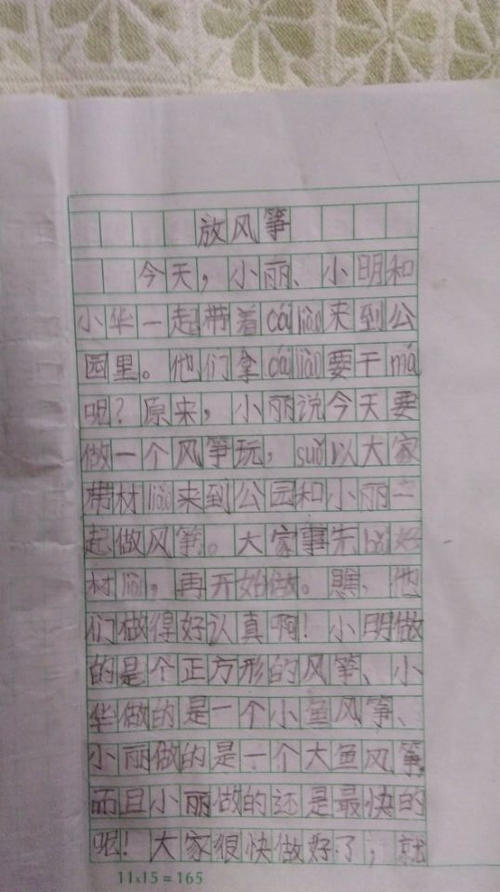 放风筝
今天，小丽、小明和
小华一起带着cái liào来到公
园里。他们拿cái liào要干má
呢？原来，小丽说今天要
做一个风筝玩，suǒ以大家
带材liào来到公园和小丽一
起做风筝。大家事先bèi好
材liào，再开始做。瞧，他
们做得好认真啊！小明做
的是个正方形的风筝、小
华做的是一个小鱼风筝、
小丽做的是一个大鱼风筝，
而且小丽做的还是最快的
呢！大家很快做好了，就
11x15=165